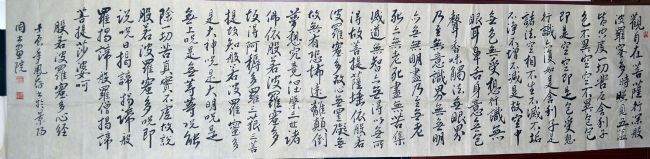 觀自在菩薩行深般若
波羅蜜多時照見五蘊
皆空度一切苦厄舍利子
色不異空空不異色色
即是空空即是色受想
行識亦復如是舍利子是
諸法空相不生不滅不垢
不淨不增不減是故空中
無色無受想行識無
眼耳鼻舌身意無色
聲香味觸法無眼界
乃至無意識界無無明
亦無無明盡乃至無老
死亦無老死盡無苦集
滅道無智亦無得以無所
得故菩提薩埵依般若
波羅蜜多故心無罣礙
故無有恐怖遠離顛倒
夢想究竟涅槃三世諸
佛依般若波羅蜜多
故得阿耨多羅三藐三菩
提故知般若波羅蜜多
是大神咒是大明咒是
無上咒是無等等咒能
除一切苦真實不虛故說
般若波羅蜜多咒即
說咒曰揭諦揭諦般
羅揭諦般羅僧揭諦
菩提莎婆呵
般若波羅蜜多心經
壬辰年於景陽
岡